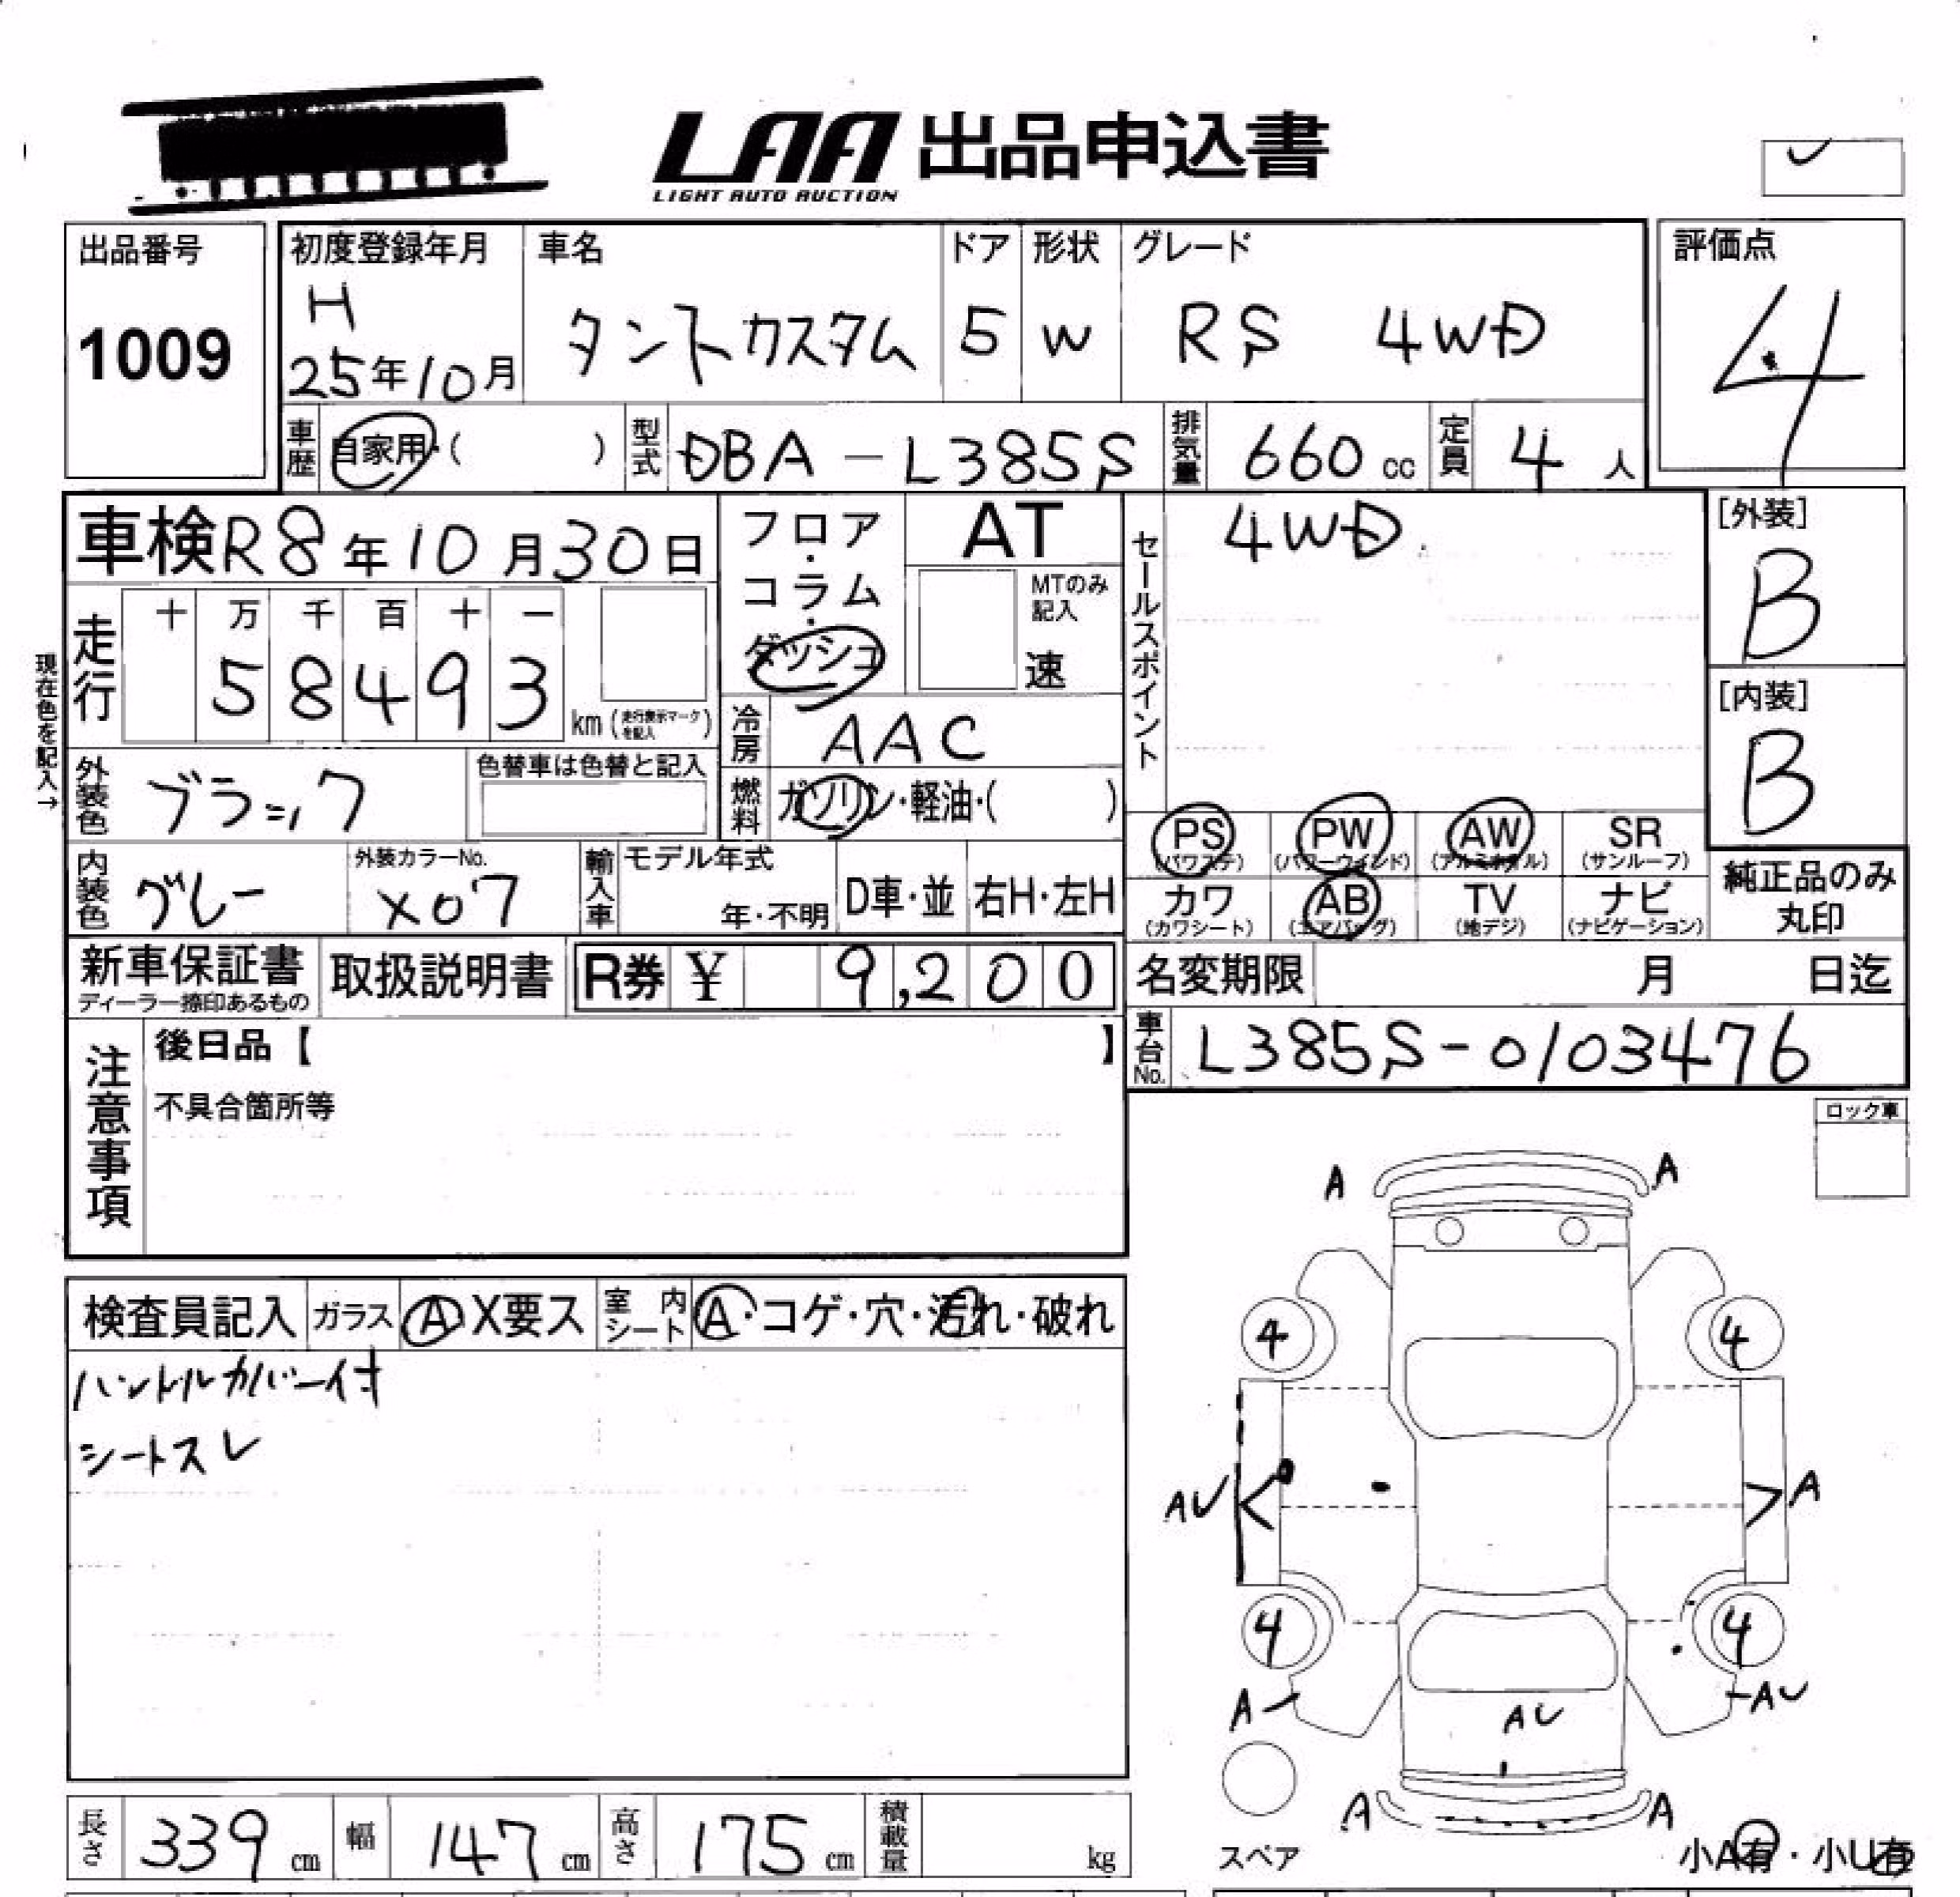 LAA 出品申込書
LIGHT AUTO AUCTION
出品番号
1009
初度登録年月
H
25年10月
車名
タントカスタム
ドア
5
形状
W
グレード
RS 4WD
評価点
4
車歴 自家用・( )
型式 DBA-L385S
排気量 660 cc
定員 4 人
車検 R8年10月30日
フロア・コラム・ダッシュ
AT
MTのみ記入
速
セールスポイント
4WD
[外装]
B
[内装]
B
現在色を記入→
走行
十 万 千 百 十 一
5 8 4 9 3 km (走行表示マークを記入)
冷房 AAC
外装色 ブラック
色替車は色替と記入
燃料 ガソリン・軽油・( )
PS (パワステ) PW (パワーウィンド) AW (アルミホイル) SR (サンルーフ)
カワ (カワシート) AB (エアバッグ) TV (地デジ) ナビ (ナビゲーション)
純正品のみ丸印
内装色 グレー
外装カラーNo.
X07
輸入車
モデル年式
年・不明
D車・並
右H・左H
新車保証書
ディーラー捺印あるもの
取扱説明書
R券 ¥ 9,200
名変期限 月 日迄
車台No. L385S-0103476
注意事項
後日品【 】
不具合箇所等
ロック車
検査員記入 ガラス A X要ス 室内シート A・コゲ・穴・汚れ・破れ
ハンドルカバー付
シートスレ
A A
4 4
AU A
4 4
A AU
AU
A A
スペア
小A有・小U有
長さ 339 cm 幅 147 cm 高さ 175 cm 積載量 kg